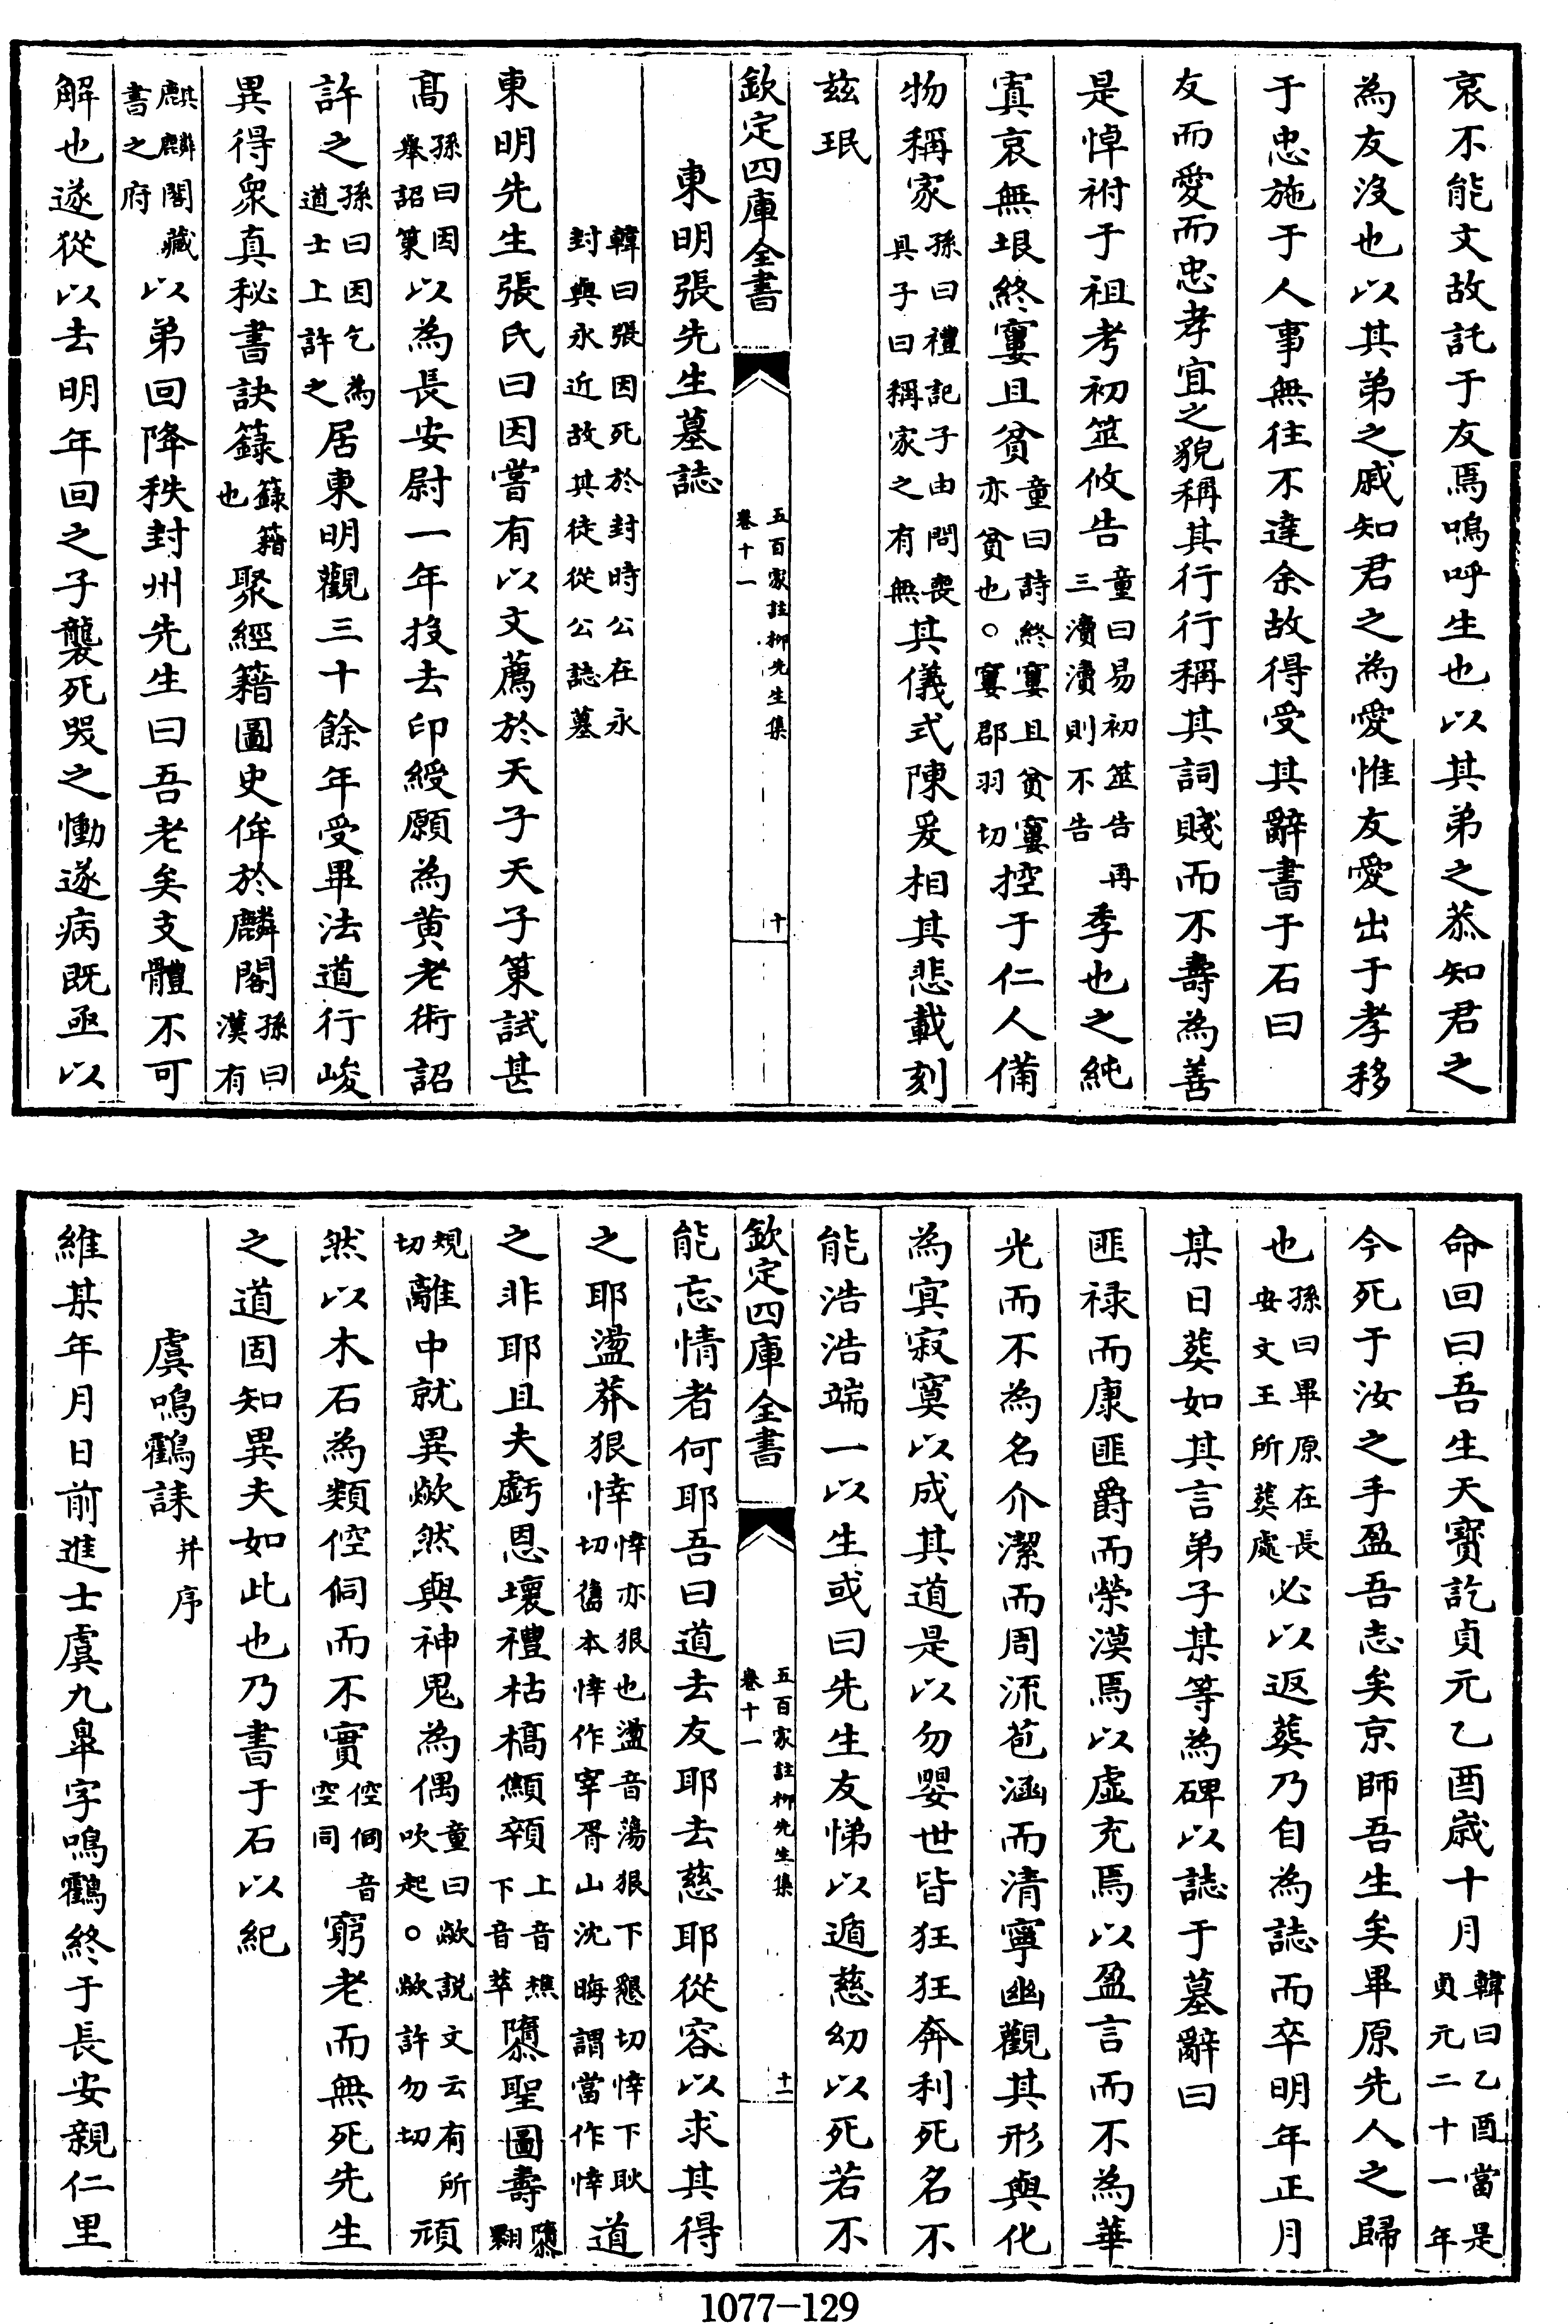 哀不能文故託于友焉嗚呼生也以其弟之恭知君之
為友沒也以其弟之戚知君之為愛惟友愛出于孝移
于忠施于人事無往不達余故得受其辭書于石曰
友而愛而忠孝宜之貌稱其行行稱其詞賤而不壽為善
是悼祔于祖考初筮攸告童曰易初筮告再三瀆瀆則不告季也之純
寘哀無垠終窶且貧童曰詩終窶且貧窶亦貧也○窶郡羽切控于仁人備
物稱家孫曰禮記子由問喪具子曰稱家之有無其儀式陳爰相其悲載刻
兹珉
欽定四庫全書
五百家註柳先生集
卷十一
十
東明張先生墓誌
韓曰張因死於封時公在永封與永近故其徒從公誌墓
東明先生張氏曰因嘗有以文薦於天子天子策試甚
髙孫曰因舉詔策以為長安尉一年投去印綬願為黄老術詔
許之孫曰因乞為道士上許之居東明觀三十餘年受畢法道行峻
異得衆真秘書訣籙籙籍也聚經籍圖史侔於麟閣孫曰漢有
麒麟閣藏書之府以弟回降秩封州先生曰吾老矣支體不可
解也遂從以去明年回之子襲死哭之慟遂病既亟以
命回曰吾生天寶訖貞元乙酉歲十月韓曰乙酉當是貞元二十一年
今死于汝之手盈吾志矣京師吾生矣畢原先人之歸
也孫曰畢原在長安文王所葬處必以返葬乃自為誌而卒明年正月
某日葬如其言弟子某等為碑以誌于墓辭曰
匪禄而康匪爵而榮漠焉以虚充焉以盈言而不為華
光而不為名介潔而周流苞涵而清寧幽觀其形與化
為冥寂寞以成其道是以勿嬰世皆狂狂奔利死名不
能浩浩端一以生或曰先生友悌以遁慈幼以死若不
欽定四庫全書
五百家註柳先生集
卷十一
十一
能忘情者何耶吾曰道去友耶去慈耶從容以求其得
之耶盪莽狠悻悻亦狠也盪音蕩狠下懇切悻下耿切舊本悻作宰胥山沈晦謂當作悻道
之非耶且夫虧恩壞禮枯槁顦顇上音樵下音萃隳聖圖壽隳翾
規切離中就異歘然與神鬼為偶童曰歘説文云有所吹起○歘許勿切頑
然以木石為類倥侗而不實倥侗音空同窮老而無死先生
之道固知異夫如此也乃書于石以紀
虞鳴鶴誄并序
維某年月日前進士虞九臯字鳴鶴終于長安親仁里
1077-129